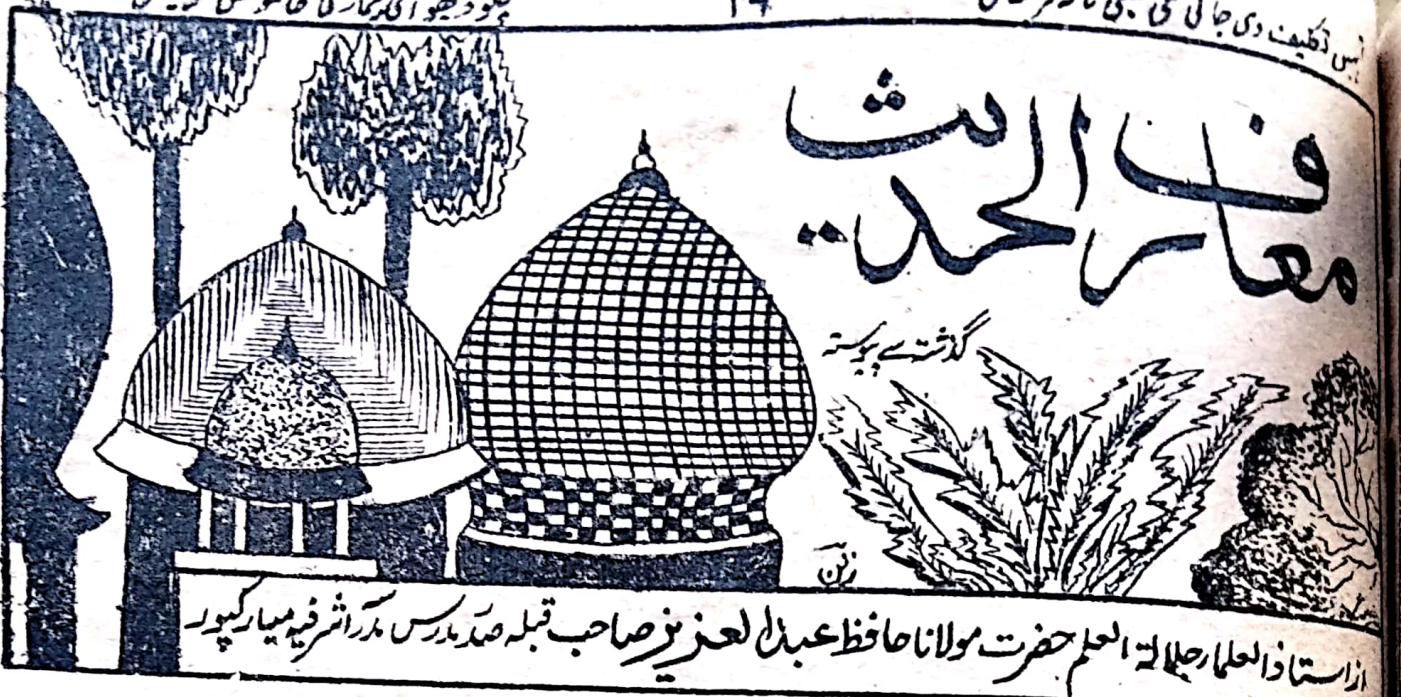 ۱۴
معارف الحدیث
گذشتہ سے پیوستہ
از استاذ العلماء جلالۃ العلم حضرت مولانا حافظ عبدالعزیز صاحب قبلہ صدر مدرس مدرسہ اشرفیہ مبارکپور